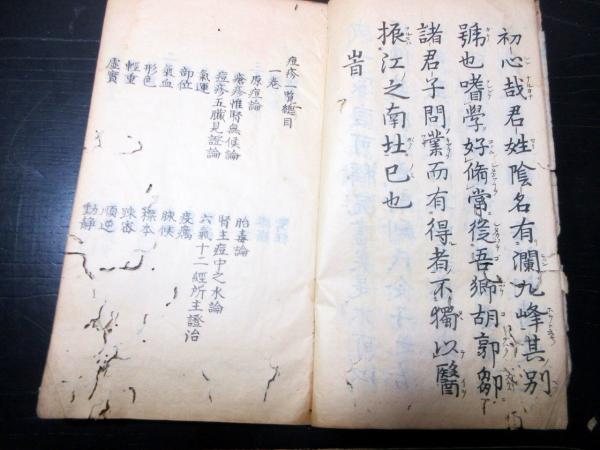 初心哉君姓陰名有瀾九峰其別
號也嗜學好脩常從吾鄉胡郭鄒
諸君子問業而有得者不獨以醫
振江之南址巳也
旹
痘疹一覽總目
一卷
原痘論
瘡疹惟腎無候論
痘疹五臟見證論
氣運
部位
氣血
形色
輕重
虛實
胎毒論
腎主痘中之水論
六氣十二經所主證治
疫癘
脉候
標本
踈密
順逆
動靜